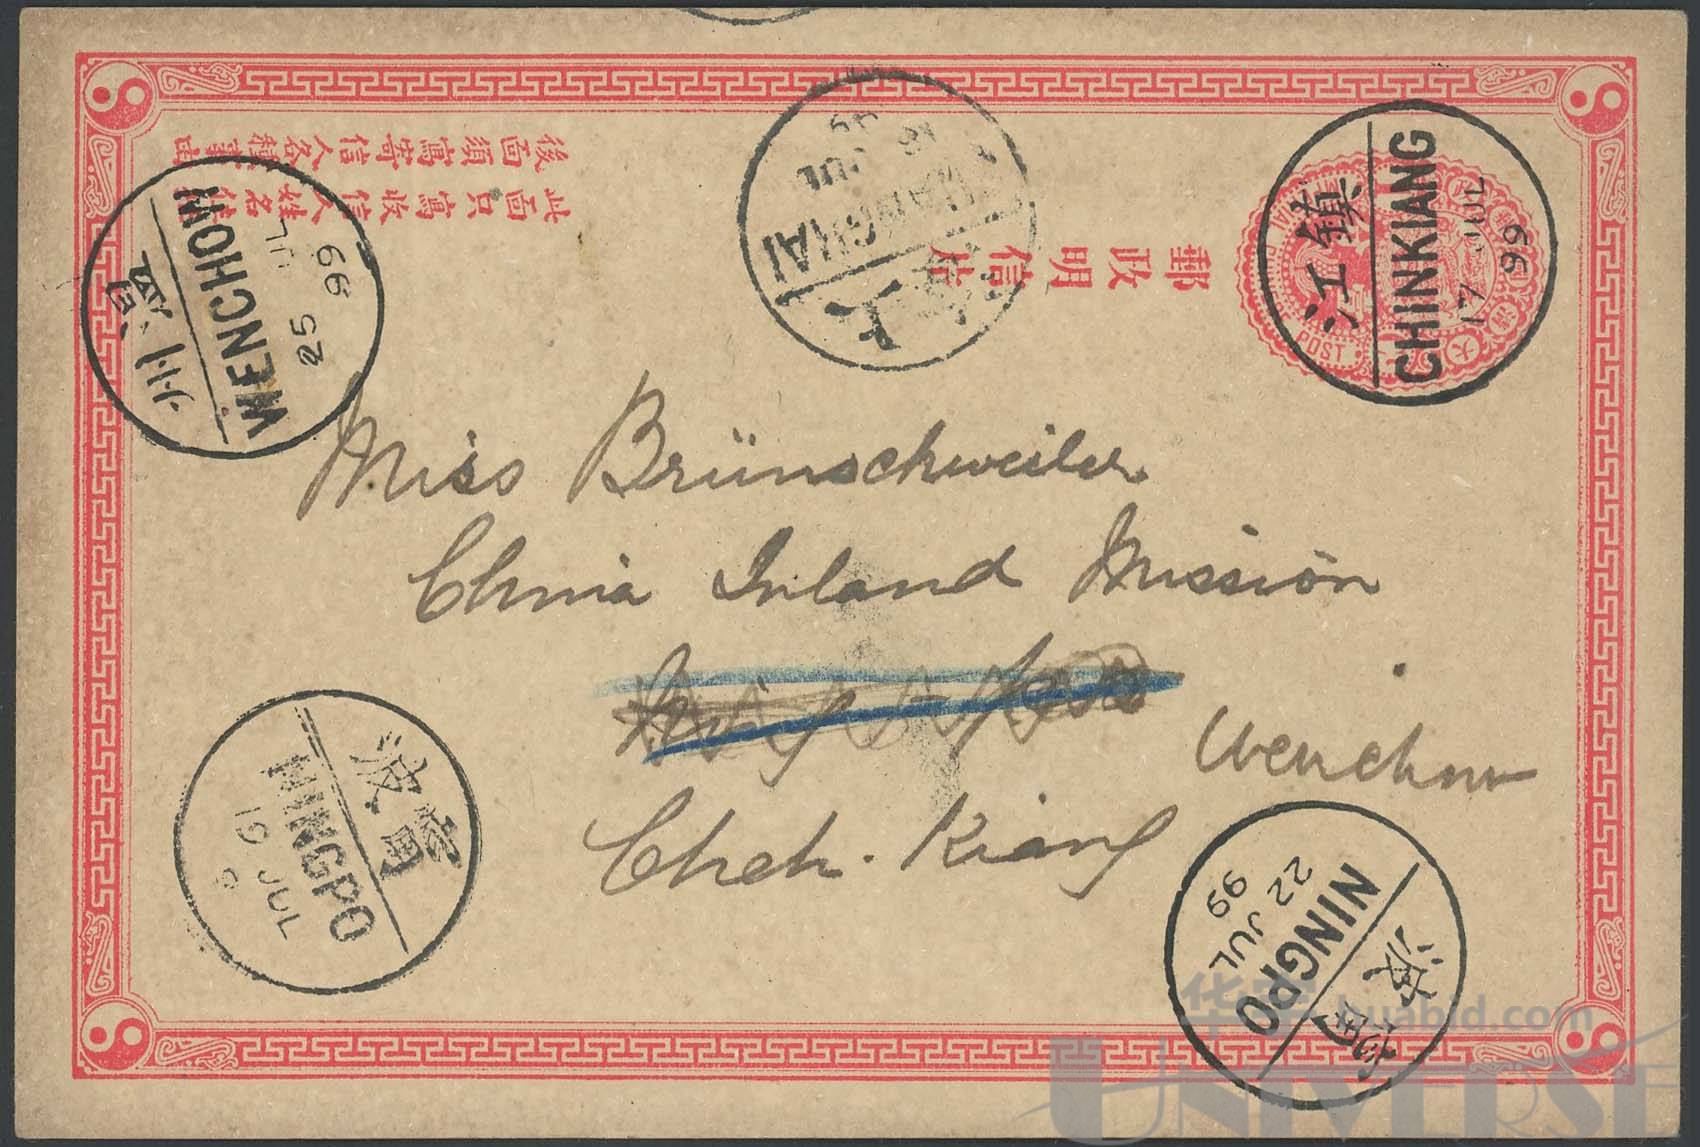 郵政明信片
此面只寫收信人姓名住
後面須寫寄信人各種事由
POST
鎮江
CHINKIANG
17 JUL
99
SHANGHAI
JUL
WENCHOW
25 JUL
99
Miss Brünschweiler
China Inland Mission
Wenchow
Cheh. Kiang
寧波
NINGPO
19 JUL
9
寧波
NINGPO
22 JUL
99
huabid.com
UNIVERSE